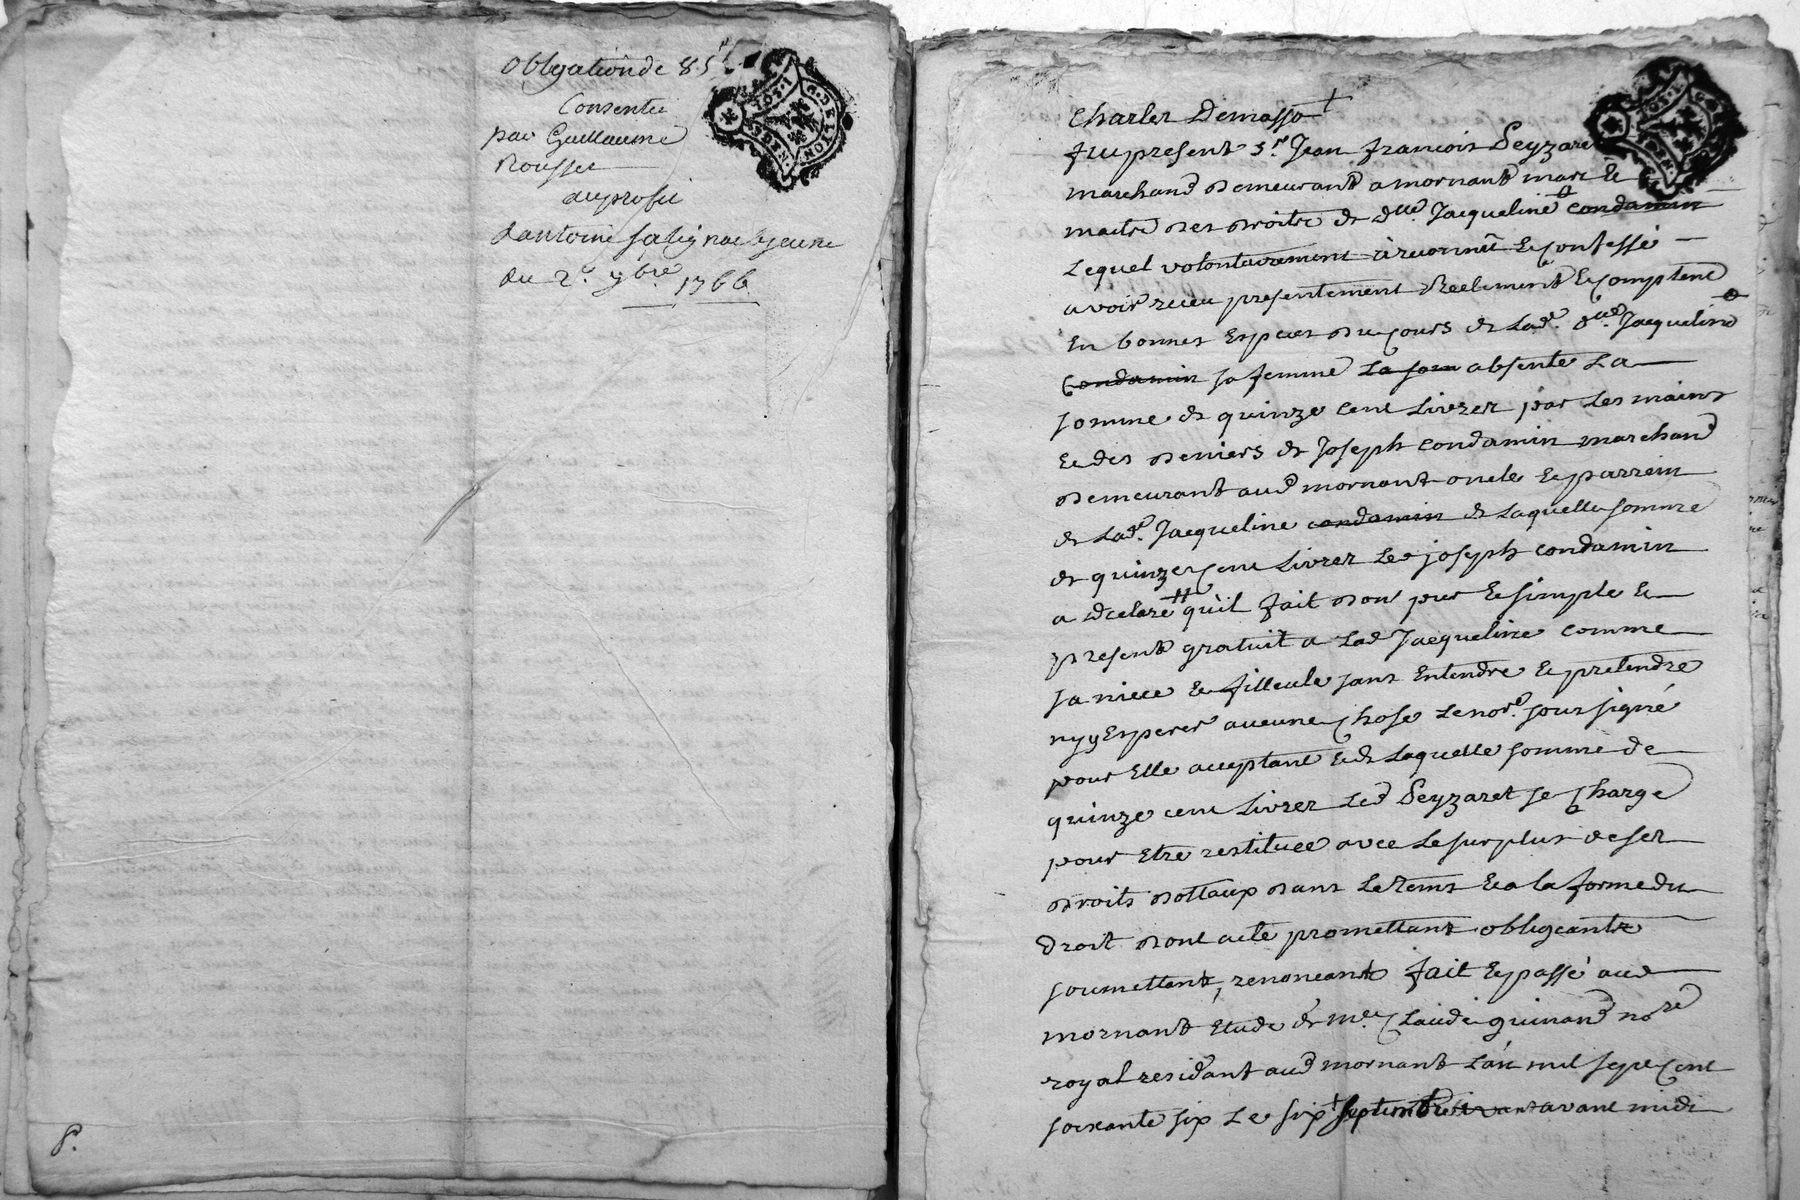 Obligation de 85
Consentie
par Guillaume
Rousset
au profit
d'antoine jeune
du 2e. 9bre. 1766
8.
Charles Demasso
fut present Sr. Jean francois Peyzaret
marchand demeurant a mornant mari &
maitre des droits de dlle. Jacqueline condamin
Lequel volontairement a reconnu & confessé
avoir receu presentement Reelement & comptent
En bonnes Especes du cours de Lad. dlle. Jacqueline
Condamin sa femme La som absente La
somme de quinze cent Livres par Les mains
& des deniers de Joseph condamin marchand
demeurant aud mornant oncle & parrein
de Lad. Jacqueline condamin de Laquelle somme
de quinze cent Livres Led joseph condamin
a declaré qu'il fait don pur & simple &
present gratuit a Lad Jacqueline comme
sa niece & filleule sans Entendre & pretendre
ny y Esperer aucune chose Le nore. soussigné
pour Elle acceptant & de Laquelle somme de
quinze cent Livres Led Peyzaret se charge
pour Etre restituee avec Le surplus de ses
droits dottaux dans Le tems & a la forme du
droit dont acte promettant obligeant
soumettant, renoncant fait & passé aud
mornant Etude de me. Claude guinand nore
royal residant aud mornant L'an mil sept cent
soixante six Le six septembre avant avant midi